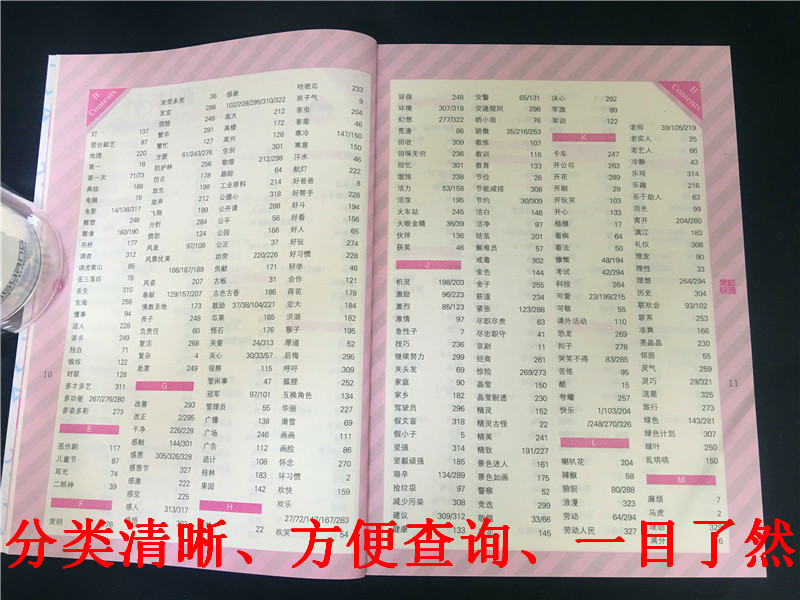 II
Contents
灯 137
登台献艺 87
地图 220
第一 18
第一次 71/73
典故 188
电脑 15
电影 14/138/317
雕塑 246
雕像 160/190
吊桥 177
调查 312
调虎离山 85
丢三落四 78
丢失 310
东海 258
懂事 94
逗人 228
读书 249
独自 71
锻炼 122
对联 128
多才多艺 311
多功能 267/276/280
多姿多彩 273
E
恶作剧 117
儿童节 87
耳光 74
二郎神 39
F
发明
发型多变 36
发言 288
烦恼 248
繁华 281
繁忙 127
方便 61/243/276
防护林 256
仿古 178
放生 198
放声 212
飞翔 199
分析 284
愤怒 124
风波 97/108
风景优美
166/187/189
风姿 207
奉献 129/157/207
佛教圣地 173
斧子 248
负责任 60
复活 268
复杂 4
赴宴 249
G
改善 293
改正 2/295
干净 226/228
感触 144/301
感恩 305/326/328
感恩节 327
感激 222
感觉 225
感人 313/317
感谢
102/209/295/310/322
高大 212
高楼 172
高兴 128
告别 301
歌唱 212/298
跟踪 64
工业原料 214
公德心 318
公开课 288
公平 56
公园 166
公正 37
功劳 220/226
贡献 171
古板 31
古色古香 186
鼓励 37/38/104/221
瓜果 165
怪石 176
关爱 24/313
关心 30/33/57
观察 115
管闲事 47
冠军 97/101
管理员 55
广播 138
广场 246
广告 112
诡计 108
桂林 183
果园 142
H
哈密瓜 233
孩子气 9
害虫 204
害羞 46
寒冷 147/150
寒意 150
汗水 46
航灯 222
好爸爸 8
好帮手 228
好斗 194
好看 156
好人 65
好玩 274
好习惯 228
好学 46
合作 121
荷花 178
宏大 184
洪湖 182
猴子 195
厚道 52
后悔 295
呼吁 309
狐狸 252
互换角色 134
华丽 227
滑雪 219
画画 111
画脸 91
怀念 270
坏习惯 2
欢快 159
欢乐
27/72/147/167/283
欢笑 54
10
II
Contents
环保 248
环境 307/318
幻想 277/322
荒唐 86
回收 309
回味无穷 236
回忆 301
馄饨 238
活力 53/158
活泼 195
火车站 245
火眼金睛 36/39
伙伴 136
获奖 46
J
机灵 198/203
激励 96/223
激烈 85/123
激情 97
急性子 7
技巧 236
继续努力 299
夹头发 69
家庭 90
家乡 182
驾驶员 296
假文盲 308
假小子 5
坚强 314
坚毅顽强 185
艰辛 134/289
捡垃圾 97
减少污染 308
建议 309/312
健康 133
交警 65/131
交通规则 296
娇小姐 76
骄傲 35/216/253
教练 107
教训 116
教育 133
节位 26
节能减排 308
节约 30/309
洁白 146
洁净 97
结茧 201
解难员 57
戒毒 302
金色 144
金子 255
筋道 234
紧张 123/288
尽职尽责 63
尽忠职守 41
京剧 11
经商 261
惊险 269/273
晶莹 150
晶莹剔透 230
精灵 152
精灵古怪 22
精美 241
精致 191/227
景色迷人 161
景色如画 175
警察 52
竞选 299
敬佩 33/66
145
决心 292
军旗 89
军训 122
K
卡车 247
开公司 263
开花 289
开朗 29
开玩笑 103
开心 133
楷模 17
看病 64
看法 50
慷慨 48/194
考试 42/294
科技 264
可爱 23/199/215
可敬 55
课外活动 110
恐龙 259
扣子 278
哭笑不得 83/285
苦练 95
酷 15
夸耀 257
快乐 1/103/204
/248/270/326
L
喇叭花 204
辣椒 58
狼狈 80/288
浪漫 323
劳动 64/294
劳动人民 327
老师 39/105/219
老实人 25
老艺人 66
冷静 43
乐观 314
乐趣 216
乐于助人 63
泪光 99
离开 204/260
漓江 183
礼仪 306
理发 90
理性 33
理想 264/294
历史 304
联欢会 93/102
联系 253
凉爽 166
亮晶晶 230
邻居 55
灵气 259
灵巧 29/321
流星 325
旅行 273
绿色 143/281
绿色计划 307
绿叶 250
乱哄哄 150
M
麻烦 7
马虎 2
11
分类清晰、方便查询、一目了然